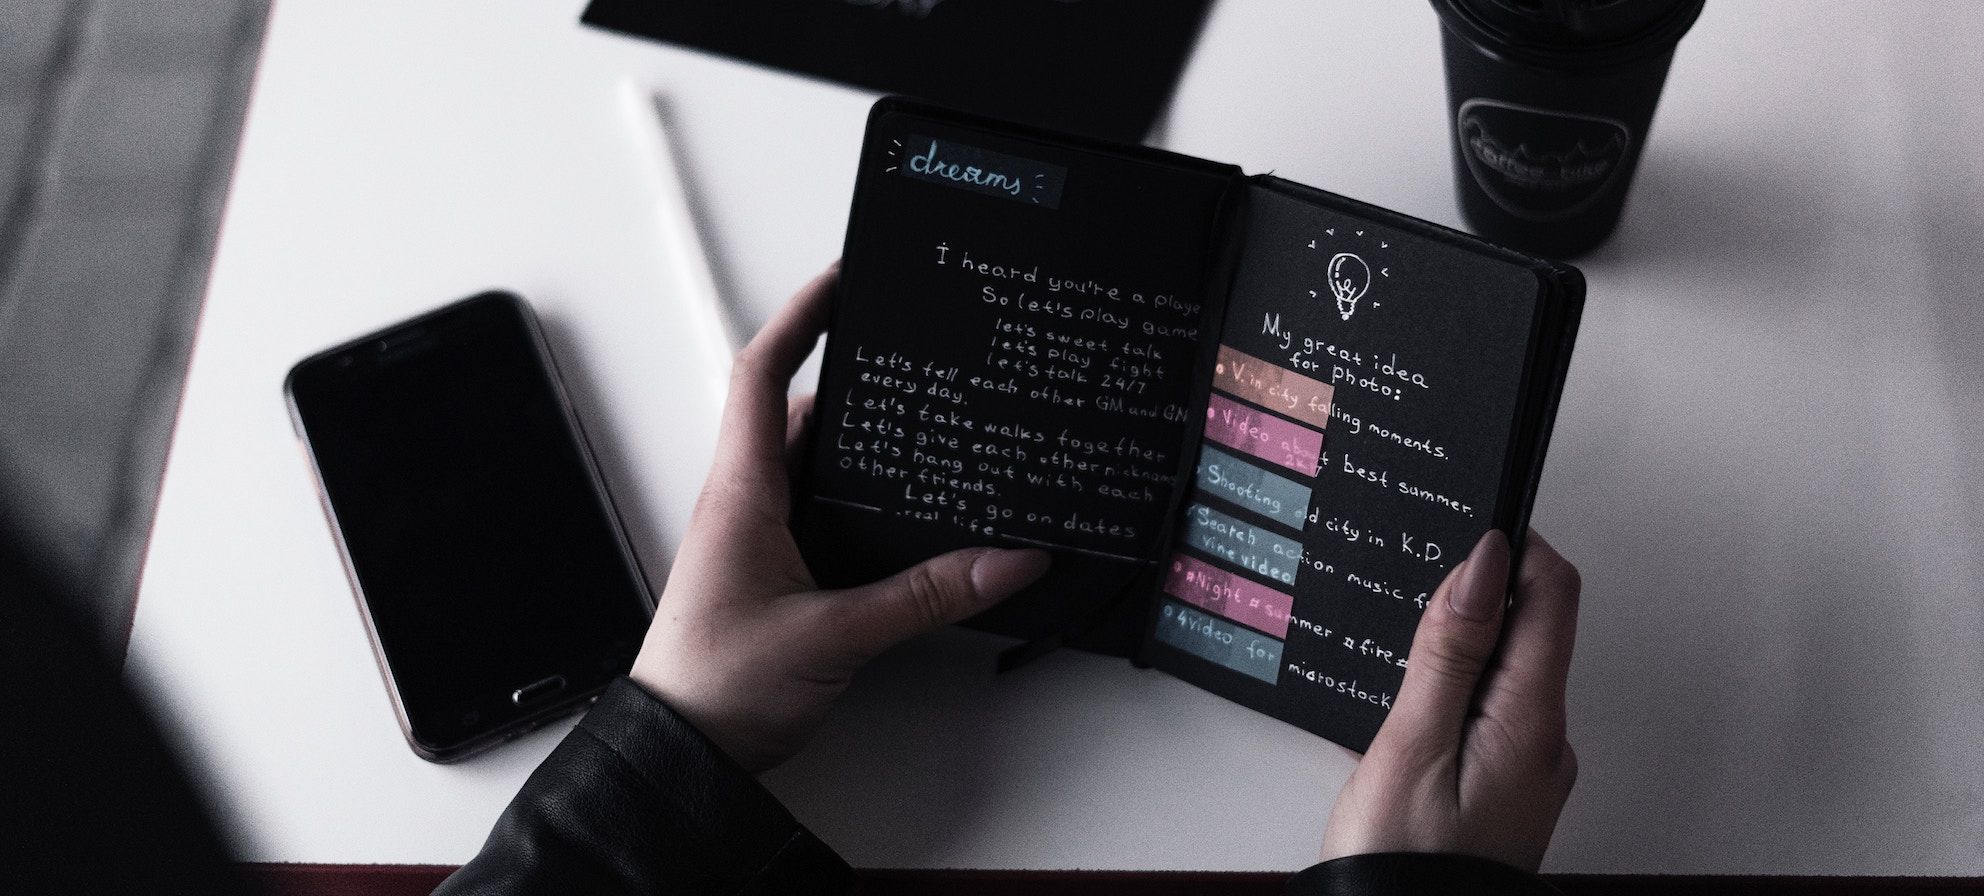 dreams
I heard you're a playe
So let's play game
let's sweet talk
let's play fight
let's talk 24/7
Let's tell each other GM and GN
every day.
Let's take walks together
Let's give each other nicknam
Let's hang out with each
other friends.
Let's go on dates
real life
My great idea
for photo:
V. in city falling moments.
Video about best summer.
2k17
Shooting old city in K.D.
Search action music f
vine video
#Night #summer #fire#
4video for microstock
coffee bike